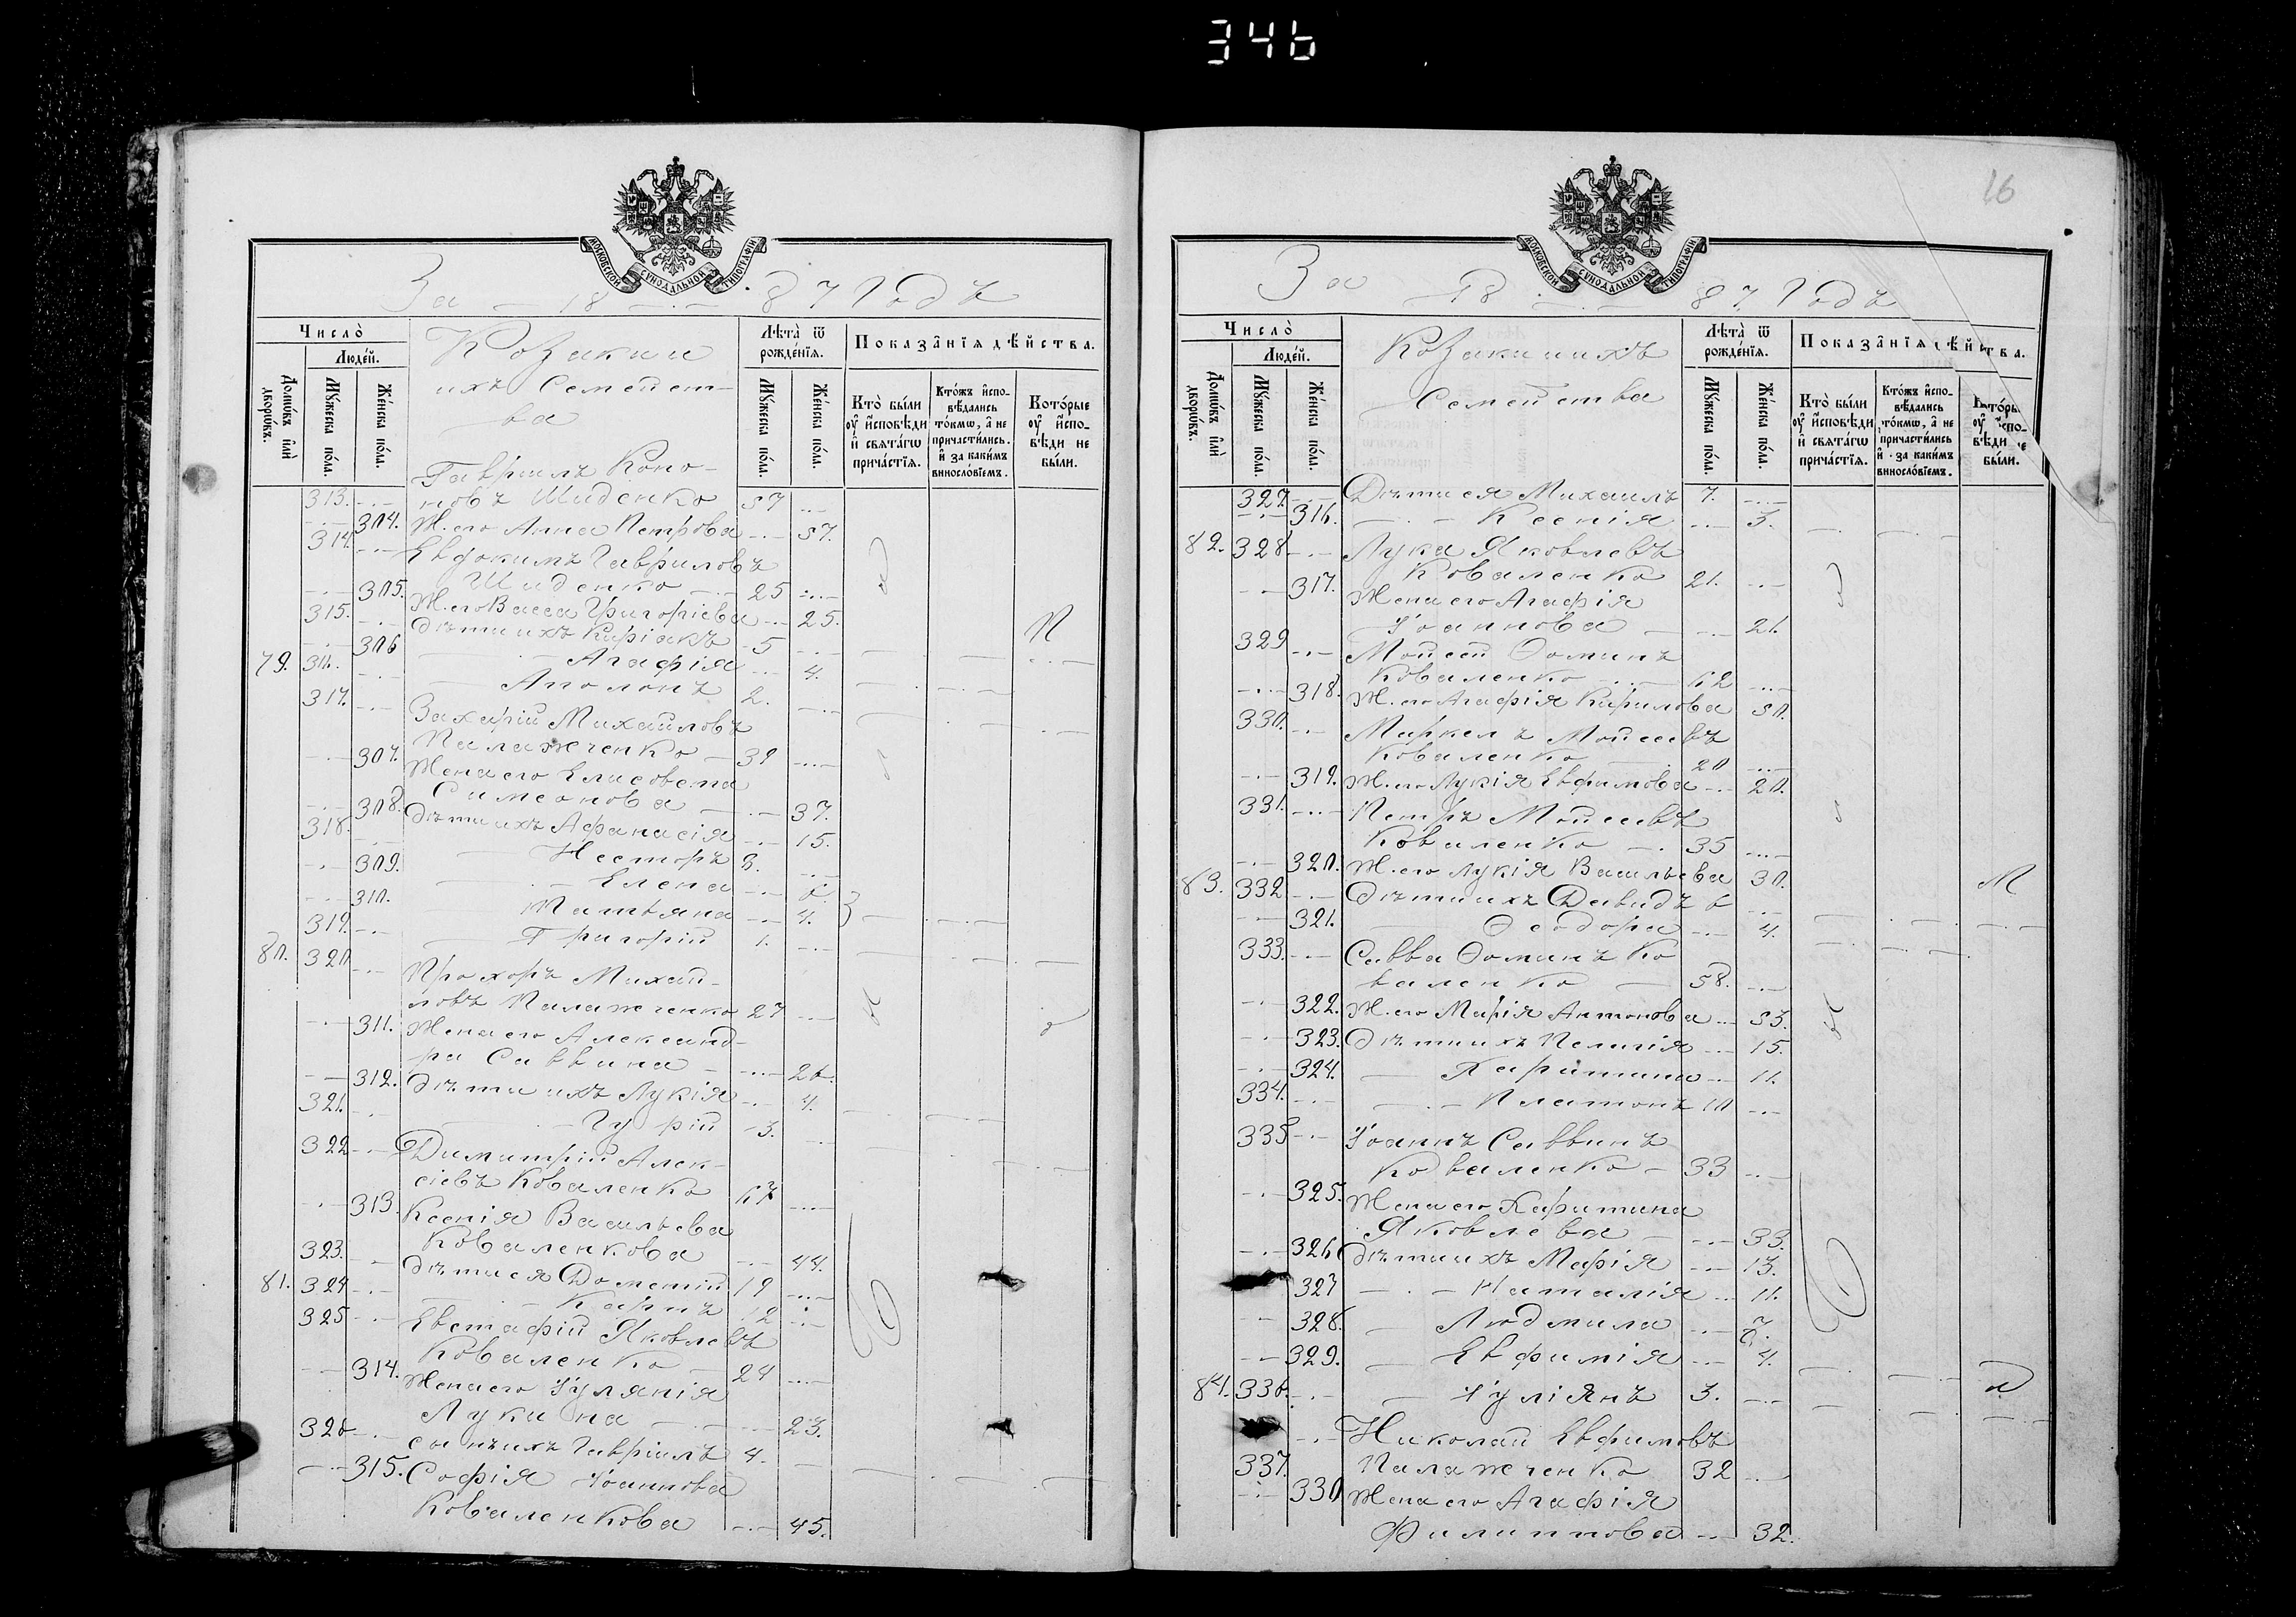 346
МОСКОВСКОЙ СѴНОДАЛЬНОЙ ТИПОГРАФІИ
За 1887 Годъ
Число̀
Людей.
Домѡвъ и҆лѝ дворѡвъ.
Мꙋжеска пола.
Женска пола.
Козакии
ихъ Семейст-
ва
Лѣта̀ ѿ рожденїѧ.
Мꙋжеска пола.
Женска пола.
Показанїѧ дѣйства.
Кто̀ были ᲂу҆ и҆сповѣди и҆ свѧтагѡ причастїѧ.
Ктожъ и҆спо-вѣдались токмѡ, а҆ не причастились. и҆ за какимъ винословїемъ.
Которые ᲂу҆ и҆спо-вѣди не были.
Гавріилъ Коно-
313. новъ Шиденко 57
304. Ж. его Анна Петрова 57.
314. Евдокимъ Гавриловъ
Шиденко 25
305. Ж. его Васса Григоріева 25.
315. дѣти ихъ Киріакъ 5
306 Агафія 4.
79. 316. Аполонъ 2.
317. Захарій Михайловъ
Палажченко 39
307. Жена его Елисовета
Симеонова 37.
308. дѣти ихъ Афанасія 15.
318. Несторъ 8.
309. Елена 6
310. Татьяна 4.
319. Григорій 1.
80. 320 Прохоръ Михай-
ловъ Палажченко 27
311. Жена его Александ-
ра Саввина 26.
312. дѣти ихъ Лукія 4.
321. Гурій 3.
322 Димитрій Алек-
сіевъ Коваленко 67
313. Ксенія Васильева
Коваленкова 44.
323. дѣти ея Дометій 19
81. 324 Карпъ 12
325 Евстафій Яковлевъ
Коваленко 24
314. Жена его Іулянія
Лукина 23.
326 сынъ ихъ Гавріилъ 4.
315. Софія Іоаннова
Коваленкова 45.
16
МОСКОВСКОЙ СѴНОДАЛЬНОЙ ТИПОГРАФІИ
За 1887 Годъ
Число̀
Людей.
Домѡвъ и҆лѝ дворѡвъ.
Мꙋжеска пола.
Женска пола.
Козакиихъ
Семейства
Лѣта̀ ѿ рожденїѧ.
Мꙋжеска пола.
Женска пола.
Показанїѧ дѣйства.
Кто̀ были ᲂу҆ и҆сповѣди и҆ свѧтагѡ причастїѧ.
Ктожъ и҆спо-вѣдались токмѡ, а҆ не причастились и҆ за какимъ винословїемъ.
вѣди не были.
327. Дѣти ея Михаилъ 7.
316. Ксенія 3.
82. 328 Лука Яковлевъ
Коваленко 21.
317. Жена его Агафія
Іоаннова 21.
329 Мойсей Ѳоминъ
Коваленко 62
318. Ж. его Агафія Кирилова 50.
330. Маркелъ Мойсеевъ
Коваленко 20
319. Ж. его Лукія Евфимова 20.
331. Петръ Мойсеевъ
Коваленко 35
320. Ж. его Лукія Васильева 30.
83. 332 Дѣти ихъ Давидъ 6
321. Ѳеодора 4.
333. Савва Ѳоминъ Ко
валенко 58.
322. Ж. его Марія Антонова 53.
323. Дѣти ихъ Пелагія 15.
324. Харитина 11.
334. Платонъ 10
335 Іоаннъ Саввинъ
Коваленко 33
325. Жена его Харитина
Яковлева 33.
326 Дѣти ихъ Марія 13.
327 Наталія 11.
328. Людмила
329. Евфимія 4.
84. 336. Іуліянъ 3.
Николай Евфимовъ
337. Палажченко 32
330 Жена его Агафія
Филиппова 32.